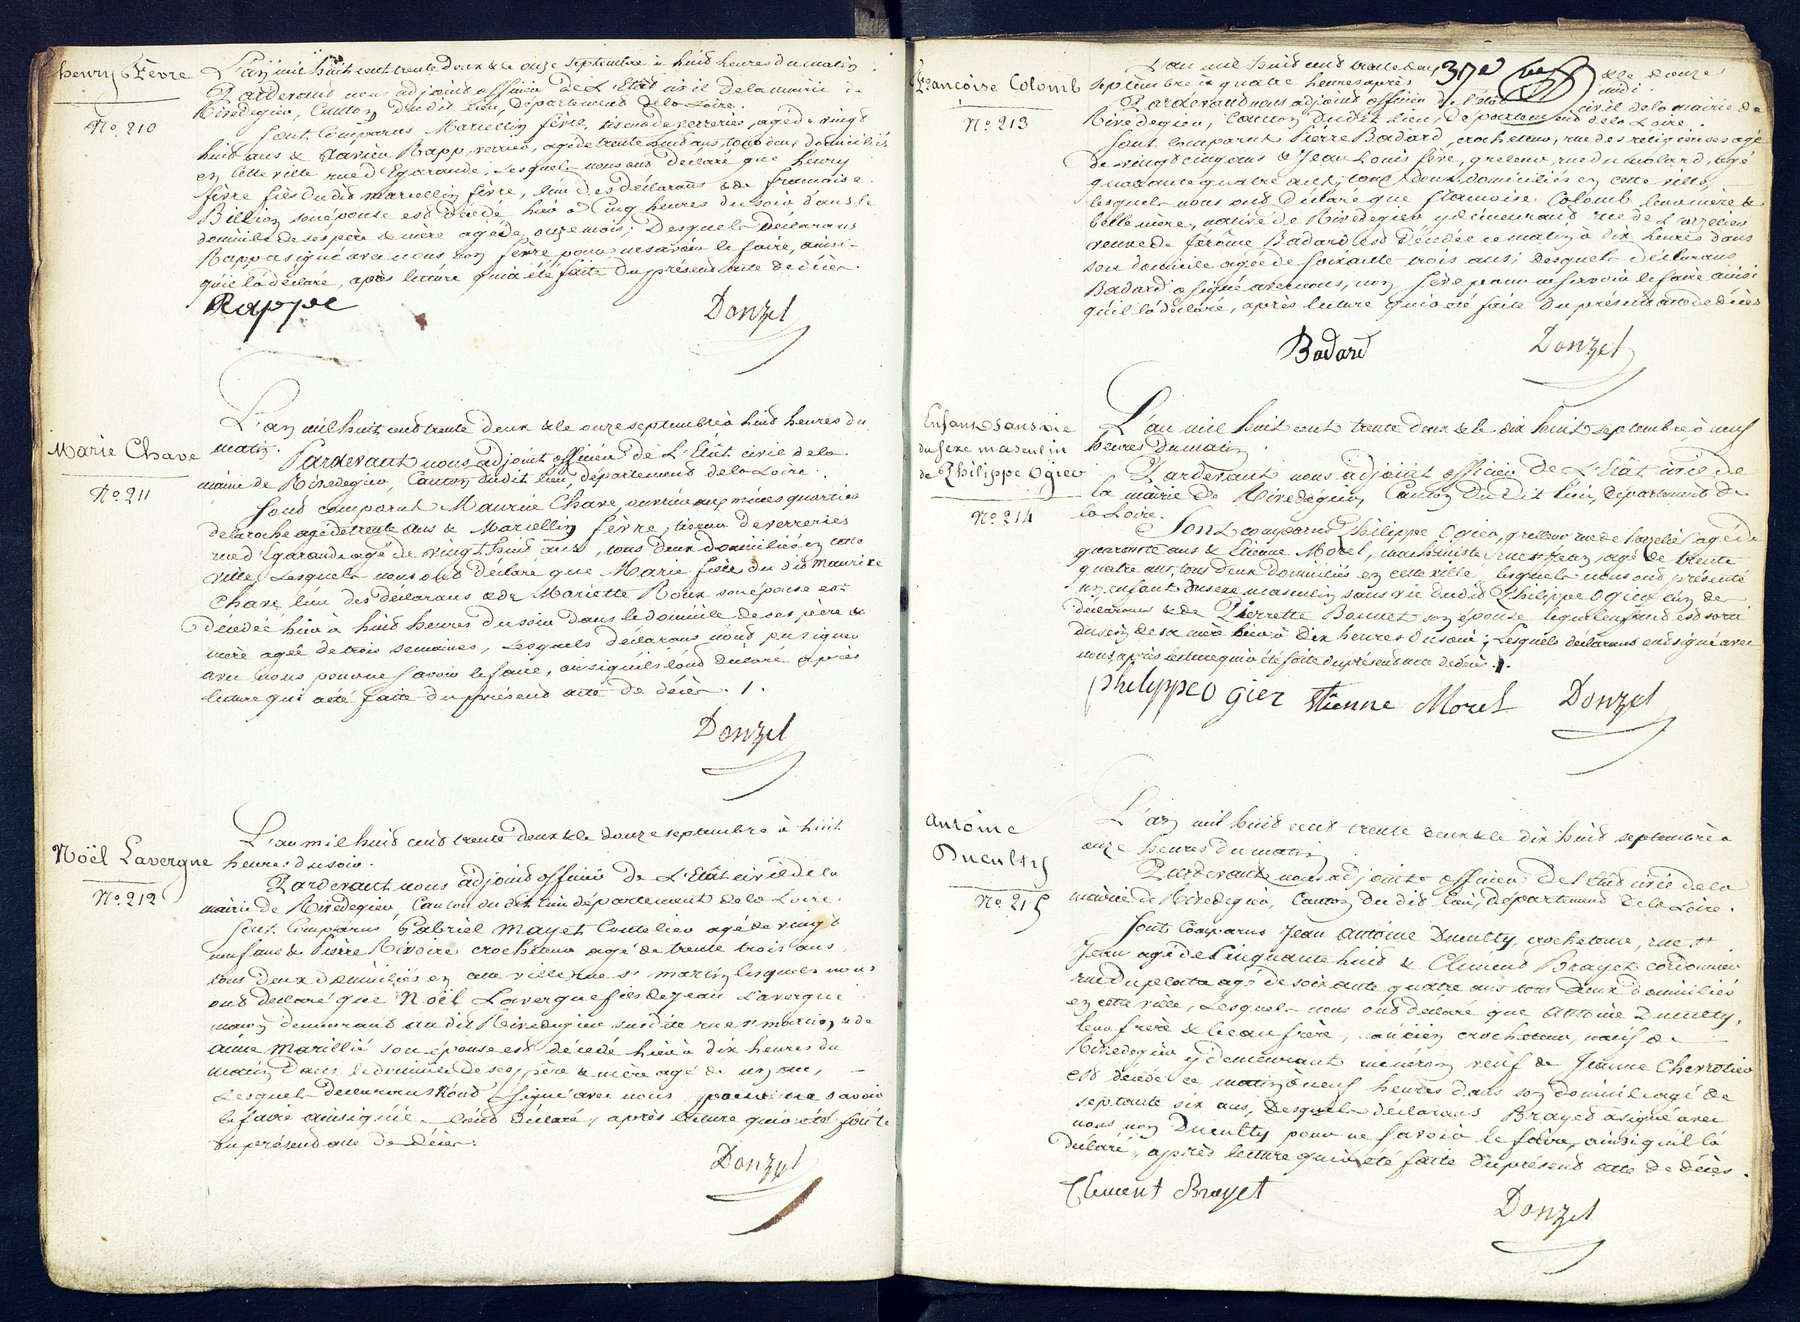 henry Fèvre
No. 210
L'an mil huit cent trente deux & le onze septembre à huit heures du matin.
Pardevant nous adjoint officier de L'Etat civil de la mairie de
Rivedegier, Canton dudit lieu, département de la Loire.
Sont Comparus Marcellin fèvre, tiseur de verreries, agé de vingt
huit ans & Rapp, verrier, agé de trente huit ans, tous deux domiciliés
en cette ville rue d'Egarande, Lesquels nous ont déclaré que henry
fèvre fils dudit marcellin fèvre, l'un des déclarans & de françoise
Billion son épouse est décédé hier à Cinq heures du soir dans le
domicile de ses père & mère agé de onze mois; Desquels déclarans
Rapp a signé avec nous non fèvre pour ne savoir le faire, ainsi
qu'il l'a déclaré, après lecture qui a été faite du présent acte de décès.
Rappe Donzel
Marie Chave
No. 211
L'an mil huit cent trente deux & le onze septembre à huit heures du
matin.
Pardevant nous adjoint officier de L'Etat civil de la
mairie de Rivedegier, Canton dudit lieu, département de la Loire.
Sont comparus Maurice Chave, ouvrier aux mines quartier
de la roche agé de trente ans & Marcellin fèvre, tiseur de verreries
rue d'Egarande agé de vingt huit ans, tous deux domiciliés en cette
ville, Lesquels nous ont déclaré que Marie fille du dit maurice
Chave l'un des déclarans & de Mariette Roux son épouse est
décédée hier à huit heures du soir dans le domicile de ses père &
mère agée de trois semaines, Lesquels déclarans n'ont pu signer
avec nous pour ne savoir le faire, ainsi qu'ils l'ont déclaré après
lecture qui a été faite du présent acte de décès. /.
Donzel
Noël Lavergne
No. 212
L'an mil huit cent trente deux & le douze septembre à huit
heures du soir.
Pardevant nous adjoint officier de L'Etat civil de la
mairie de Rivedegier, Canton du dit lieu département de la Loire.
Sont Comparus Gabriel Mayet Coutelier agé de vingt
neuf ans & Pierre Rivoire crocheteur agé de trente trois ans
tous deux domiciliés en cette ville rue St martin lesquels nous
ont declaré que Noël Lavergne fils de Jean Lavergne
maçon demeurant au dit Rivedegier susdite rue St martin & de
Aimé Marillié son épouse est décédé hier à dix heures du
matin dans le domicile de ses père & mère agé de un an,
Lesquels declarans n'ont signé avec nous pour ne savoir
le faire ainsi qu'ils l'ont déclaré, après lecture qui a été faite
du présent acte de décès.
Donzel
Françoise Colomb
No. 213
37e
L'an mil huit cent trente deux & le douze
septembre à quatre heures après midi.
Pardevant nous adjoint officier de l'état civil de la mairie de
Rivedegier, Canton dudit Lieu, département de la Loire.
Sont comparus Pierre Badard, crocheteur, rue des réligieuses agé
de vingt cinq ans & Jean Louis fère, greleur, rue du molard, agé
quarante quatre ans, tous deux domiciliés en cette ville,
lesquels nous ont déclaré que françoise Colomb leur mère &
belle mère, native de Rivedegier y demeurant rue de
veuve de Jérôme Badard est décédée ce matin à dix heures dans
son domicile agée de soixante trois ans; desquels déclarans
Badard a signé avec nous, non fère pour ne savoir le faire ainsi
qu'il l'a déclaré, après lecture qui a été faite du présent acte de décès
Badard Donzel
Enfant sans vie
du sexe masculin
de Philippe Ogier
No. 214
L'an mil huit cent trente deux & le dix huit septembre à neuf
heures du matin
Pardevant nous adjoint officier de L'Etat civil de
la mairie de Rivedegier, Canton Du Dit lieu, Département de
la Loire.
Sont comparus Philippe Ogier, greleur rue de agé de
quarante ans & Etienne Morel, machiniste, rue St Jean, agé de trente
quatre ans, tous deux domiciliés en cette ville, lesquels nous ont présenté
un enfant du sexe masculin sans vie du dit Philippe Ogier l'un des
déclarans & de Pierrette Bonnet son épouse lequel enfant est sorti
du sein de sa mère hier à dix heures du soir; Lesquels declarans ont signé avec
nous, après lecture qui a été faite du présent acte de décès. /.
Philippe Ogier Etienne Morel Donzel
Antoine
Ducultty
No. 215
L'an mil huit cent trente deux & le dix huit septembre à
onze heures du matin
Pardevant nous adjoint officier de l'Etat civil de la
mairie de Rivedegier, Canton du dit lieu, département de la Loire.
Sont Comparus Jean Antoine Ducultty, crocheteur, rue St
Jean agé de Cinquante huit & Clement Brayet, cordonnier
rue du plata agé de soixante quatre ans tous deux domiciliés
en cette ville, Lesquels nous ont déclaré que Antoine Ducultty,
leur frère & beau frère, ancien crocheteur, natif de
Rivedegier y demeurant rue néron veuf de Jeanne Chevrotier
est décédé ce matin à neuf heures dans son domicile agé de
septante six ans, Desquels déclarans Brayet a signé avec
nous non Ducultty pour ne savoir le faire, ainsi qu'il l'a
déclaré, après lecture qui a été faite du présent acte de décès.
Clement Brayet Donzel